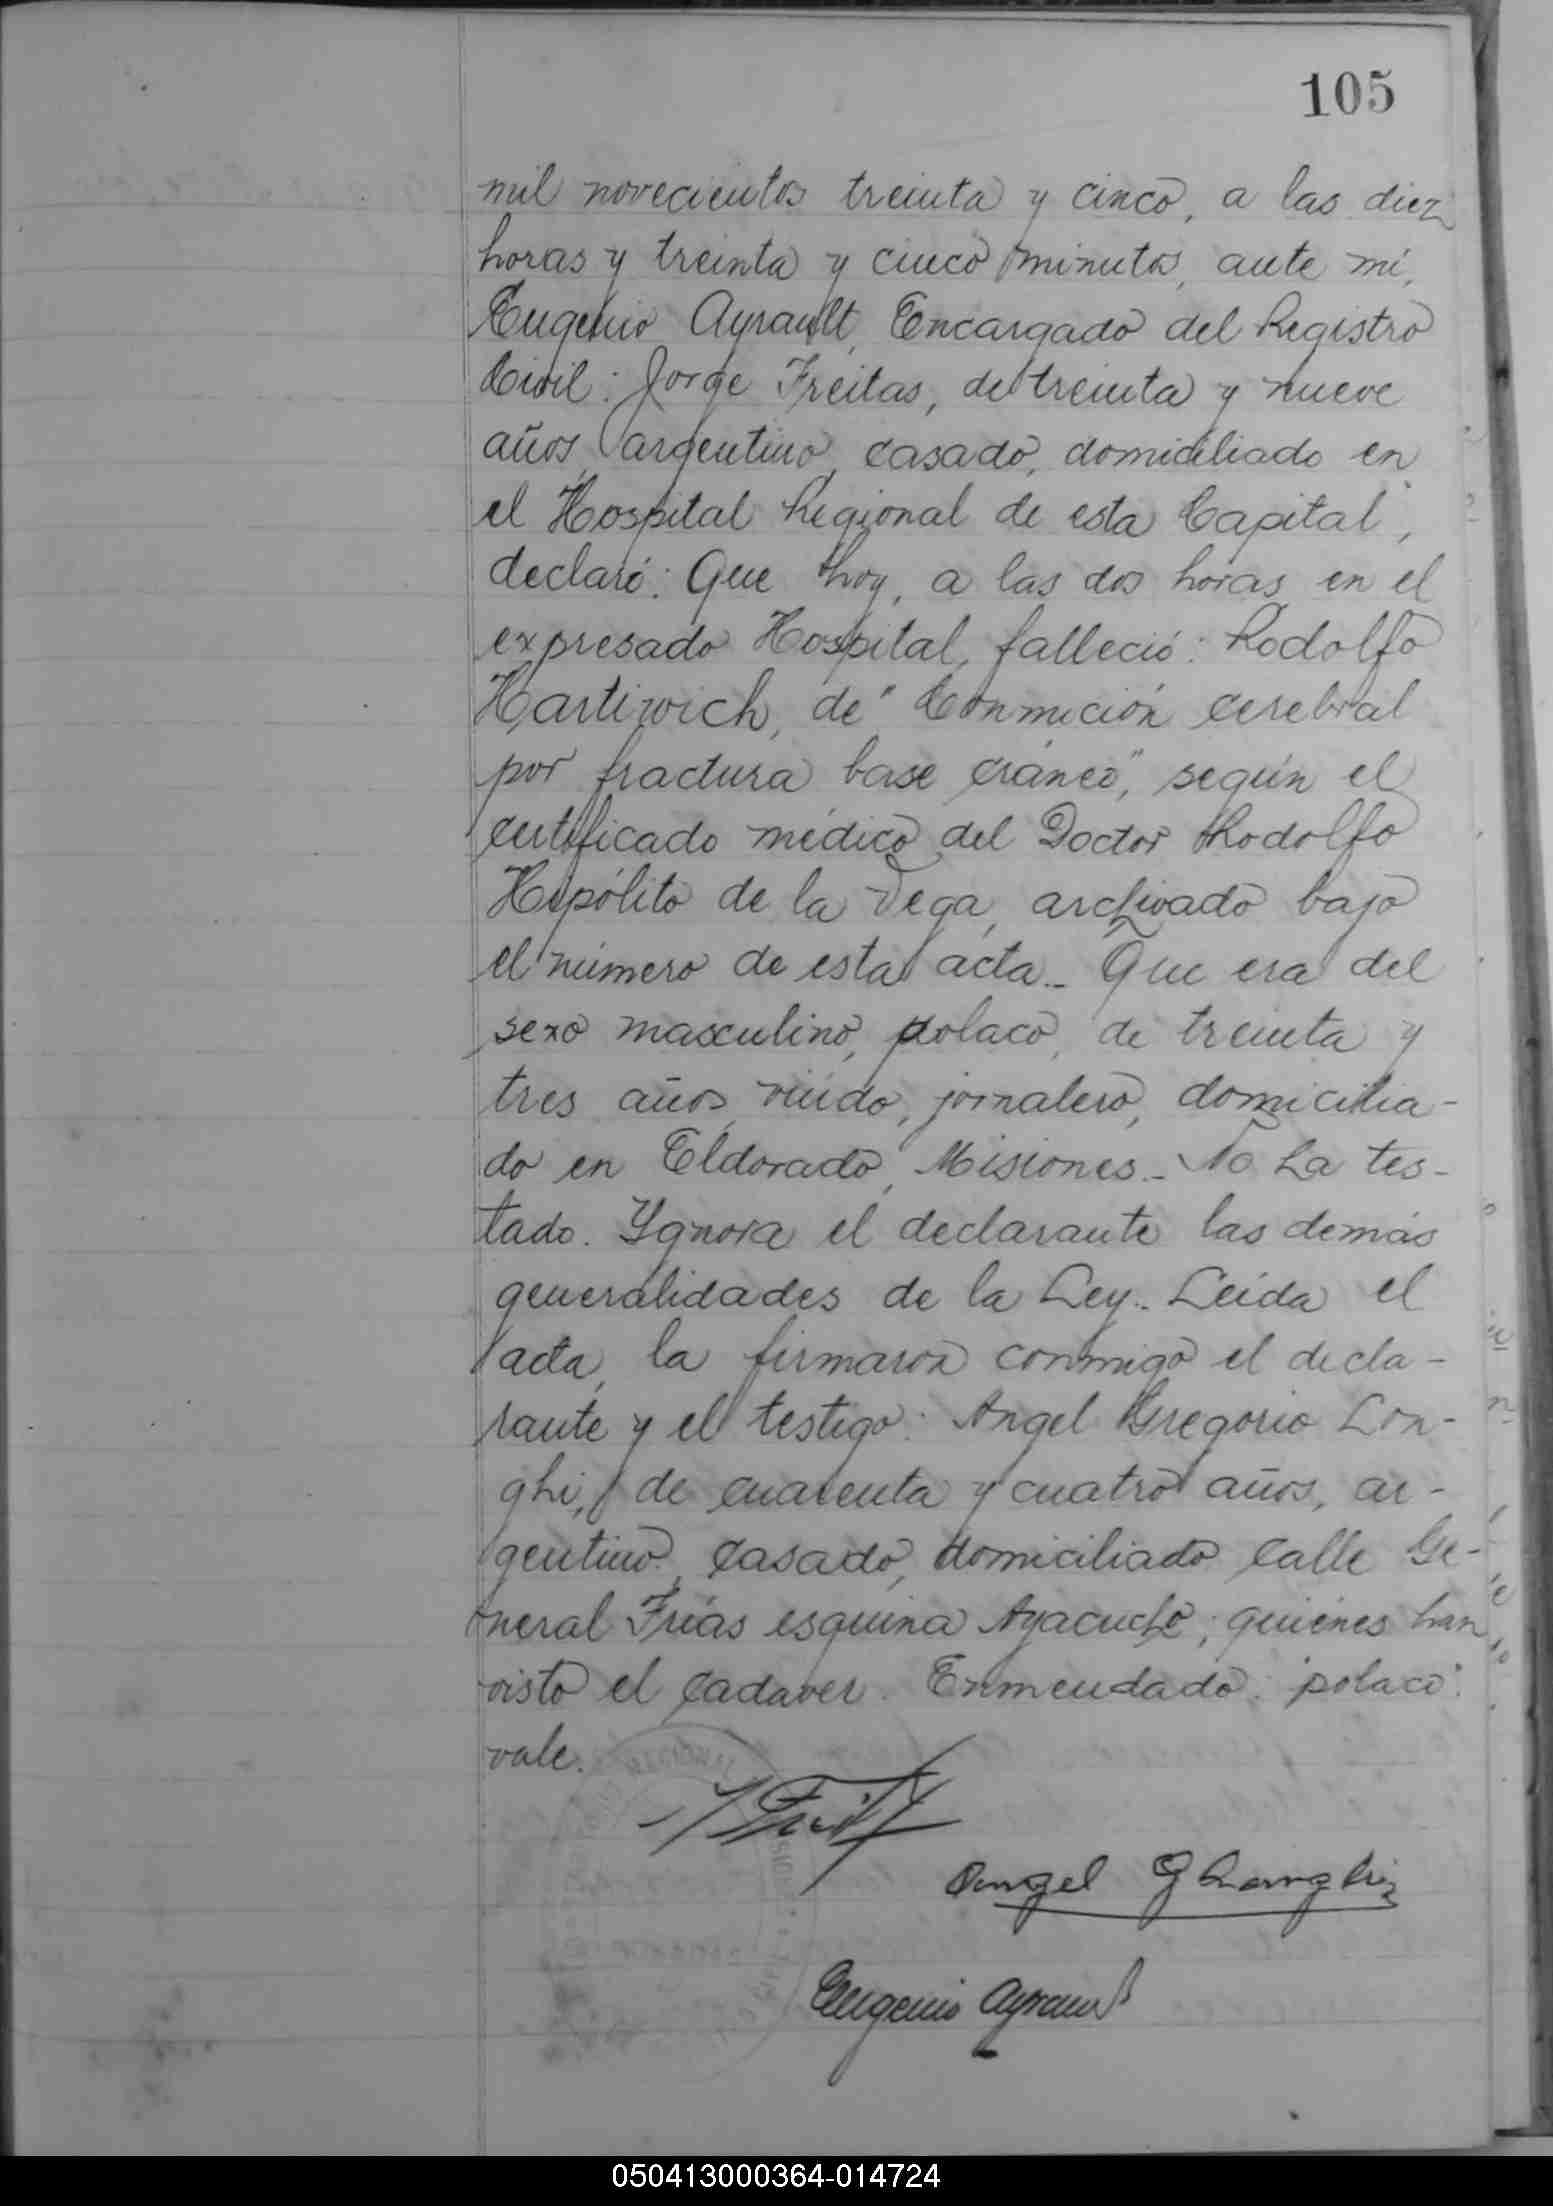 105
mil novecientos treinta y cinco, a las diez
horas y treinta y cinco minutos, ante mi,
Eugenio Ayrault, Encargado del Registro
Civil: Jorge Freitas, de treinta y nueve
años, argentino, casado, domiciliado en
el Hospital Regional de esta Capital,
declaró: Que hoy, a las dos horas en el
expresado Hospital, falleció: Rodolfo
Hartiwich, de "Conmición cerebral
por fractura base cráneo", según el
certificado médico del Doctor Rodolfo
Hipólito de la Vega, archivado bajo
el número de esta acta._ Que era del
sexo masculino, polaco, de treinta y
tres años, viudo, jornalero, domicilia-
do en Eldorado, Misiones._ No ha tes-
tado. Ygnora el declarante las demás
generalidades de la Ley._ Leída el
acta, la firmaron conmigo el decla-
rante y el testigo: Angel Gregorio Lon-
ghi, de cuarenta y cuatro años, ar-
gentino, casado, domiciliado calle Ge-
neral Frías esquina Ayacucho; quiénes han
visto el cadaver. Enmendado: "polaco":
vale.
Angel G Longhi
Eugenio Ayrault
050413000364-014724